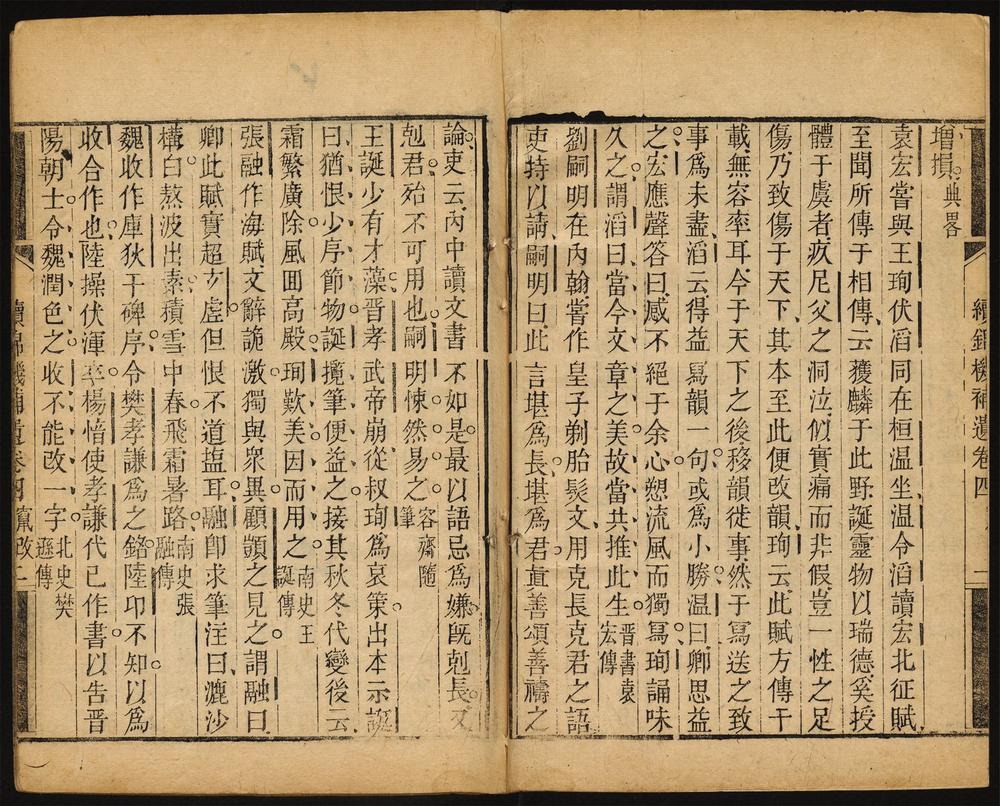 續錦機補遺卷四 二
增損 典畧
袁宏嘗與王珣伏滔同在桓温坐温令滔讀宏北征賦
至聞所傳于相傳云獲麟于此野誕靈物以瑞德奚授
體于虞者疚尼父之洞泣似實痛而非假豈一性之足
傷乃致傷于天下其本至此便改韻珣云此賦方傳千
載無容率耳今于天下之後移韻徙事然于寫送之致
事爲未盡滔云得益寫韻一句或爲小勝温曰卿思益
之宏應聲答曰感不絕于余心愬流風而獨寫珣誦味
久之謂滔曰當今文章之美故當共推此生 晋書袁宏傳
劉嗣明在内翰嘗作皇子剃胎髮文用克長克君之語
吏持以請嗣明曰此言堪爲長堪爲君真善頌善禱之
論吏云内中讀文書不如是最以語忌爲嫌旣剋長又
剋君殆不可用也嗣明悚然易之 容齋隨筆
王誕少有才藻晋孝武帝崩從叔珣爲哀策出本示誕
曰猶恨少序節物誕攬筆便益之接其秋冬代變後云
霜繁廣除風囬高殿珣歎美因而用之 南史王誕傳
張融作海賦文辭詭激獨與衆異顧顗之見之謂融曰
卿此賦實超玄虛但恨不道塩耳融卽求筆注曰漉沙
構白熬波出素積雪中春飛霜暑路 南史張融傳
魏收作庫狄干碑序令樊孝謙爲之銘陸卬不知以爲
收合作也陸操伏渾卒楊愔使孝謙代已作書以告晋
陽朝士令魏潤色之收不能改一字 北史樊遜傳
續錦機補遺卷四 竄改 二